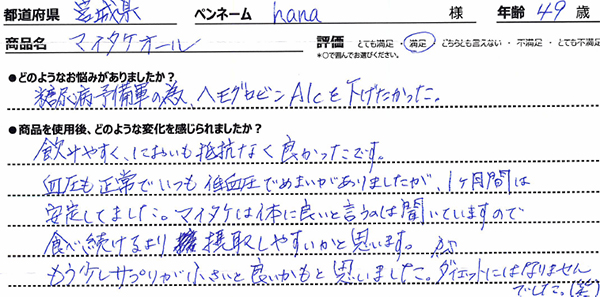 都道府県 宮城県 ペンネーム hana 様 年齢 49 歳
商品名 マイタケオール 評価 とても満足・満足・どちらとも言えない・不満足・とても不満足
*○で囲んでお選びください。
●どのようなお悩みがありましたか?
糖尿病予備軍の為、ヘモグロビンA1cを下げたかった。
●商品を使用後、どのような変化を感じられましたか?
飲みやすく、においも抵抗なく良かったです。
血圧も正常でいつも低血圧でめまいがありましたが、1ヶ月間は
安定してました。マイタケは体に良いと言うのは聞いていますので
食べ続けるより摂取しやすいかと思います。
もう少しサプリが小さいと良いかもと思いました。ダイエットにはなりません
でした。(笑)